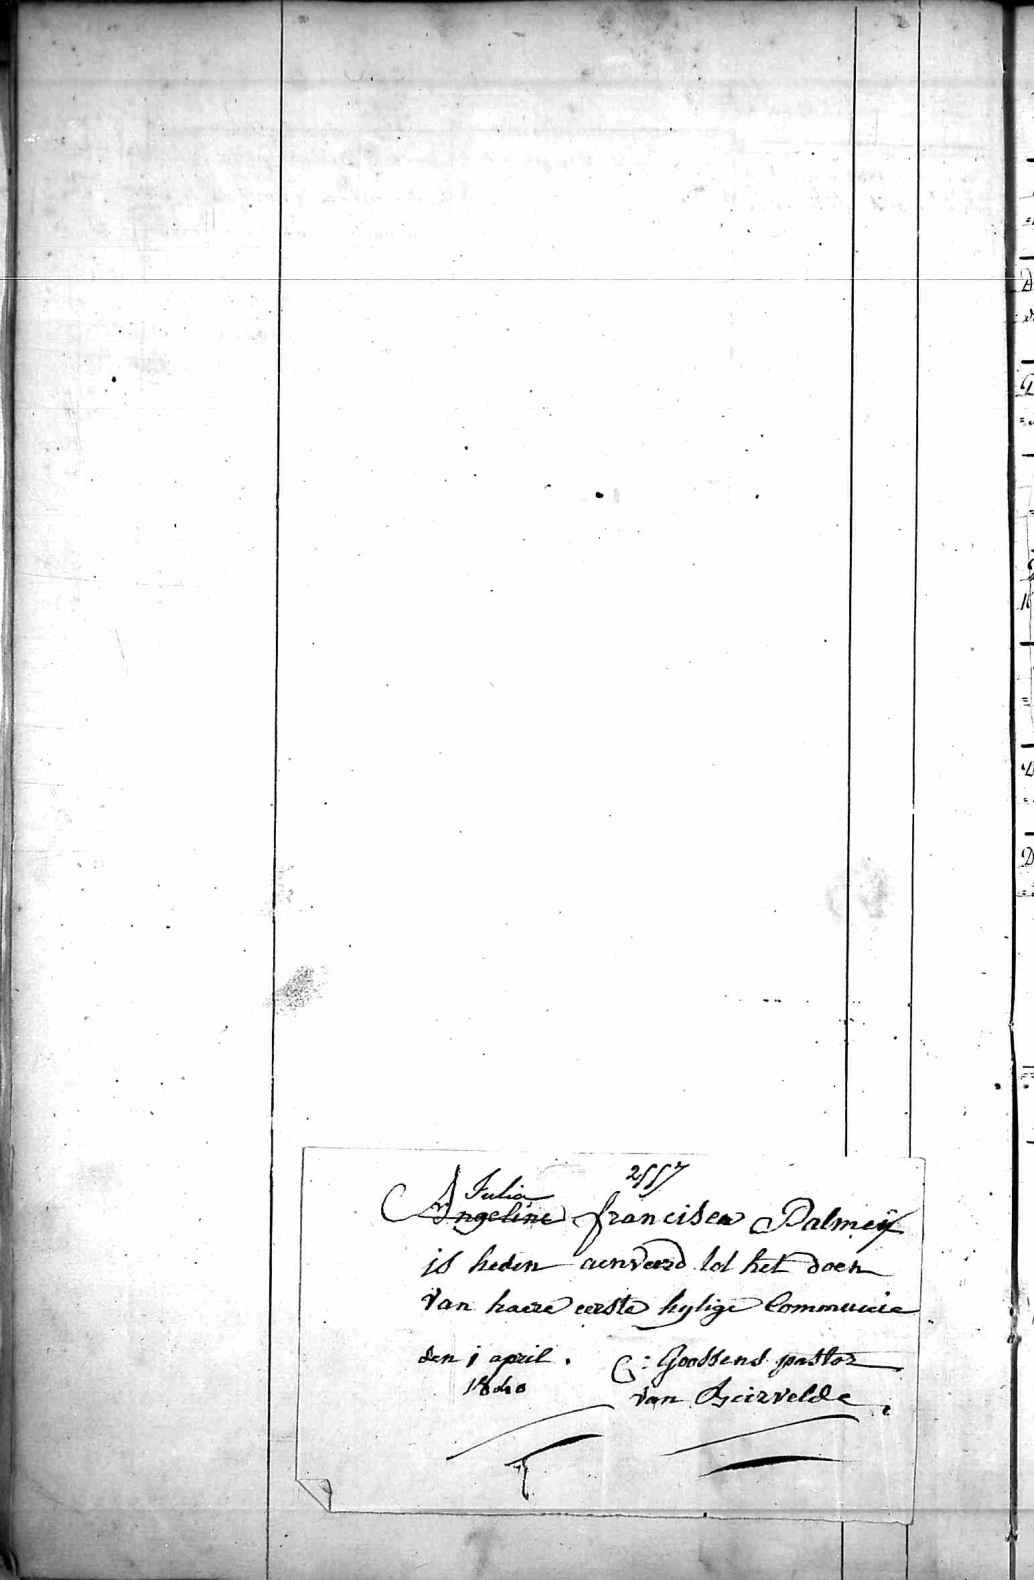 2557
Julia
Angeline francisca Dalmeij
is heden aenveerd tot het doen
van haere eerste hylige Communie
den 1 april . C: Goossens pastor
1840 van Beirvelde .